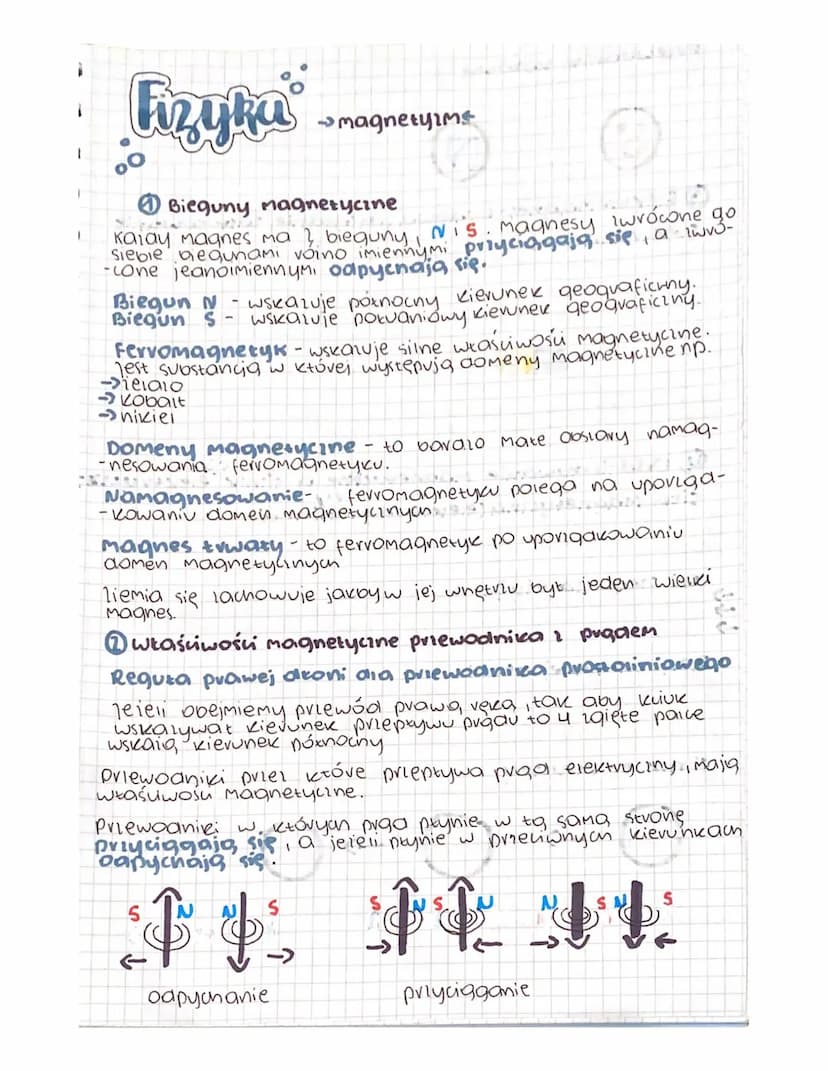 Fizyka → magnetyzm
① Bieguny magnetyczne
Każdy magnes ma 2 bieguny, N i S. Magnesy zwrócone do
siebie biegunami różno imiennymi przyciągają się, a zwró-
-cone jednoimiennymi odpychają się.
Biegun N - wskazuje północny kierunek geograficzny.
Biegun S - wskazuje południowy kierunek geograficzny.
Ferromagnetyk - wskazuje silne właściwości magnetyczne.
Jest substancją w której występują domeny magnetyczne np.
→ żelazo
→ kobalt
→ nikiel
Domeny magnetyczne - to bardzo małe obszary namag-
-nesowania ferromagnetyku.
Namagnesowanie- ferromagnetyku polega na uporząd-
-kowaniu domen magnetycznych
Magnes trwały - to ferromagnetyk po uporządkowaniu
domen magnetycznych
Ziemia się zachowuje jakby w jej wnętrzu był jeden wielki
magnes.
② Właściwości magnetyczne przewodnika z prądem
Reguła prawej dłoni dla przewodnika prostoliniowego
Jeżeli obejmiemy przewód prawą ręką, tak aby kciuk
wskazywał kierunek przepływu prądu to 4 zgięte palce
wskażą kierunek północny
Przewodniki przez które przepływa prąd elektryczny, mają
właściwości magnetyczne.
Przewodniki w których prąd płynie w tą samą stronę
przyciągają się, a jeżeli płynie w przeciwnych kierunkach
odpychają się.
S N N S S N S N N S N S
odpychanie przyciąganie